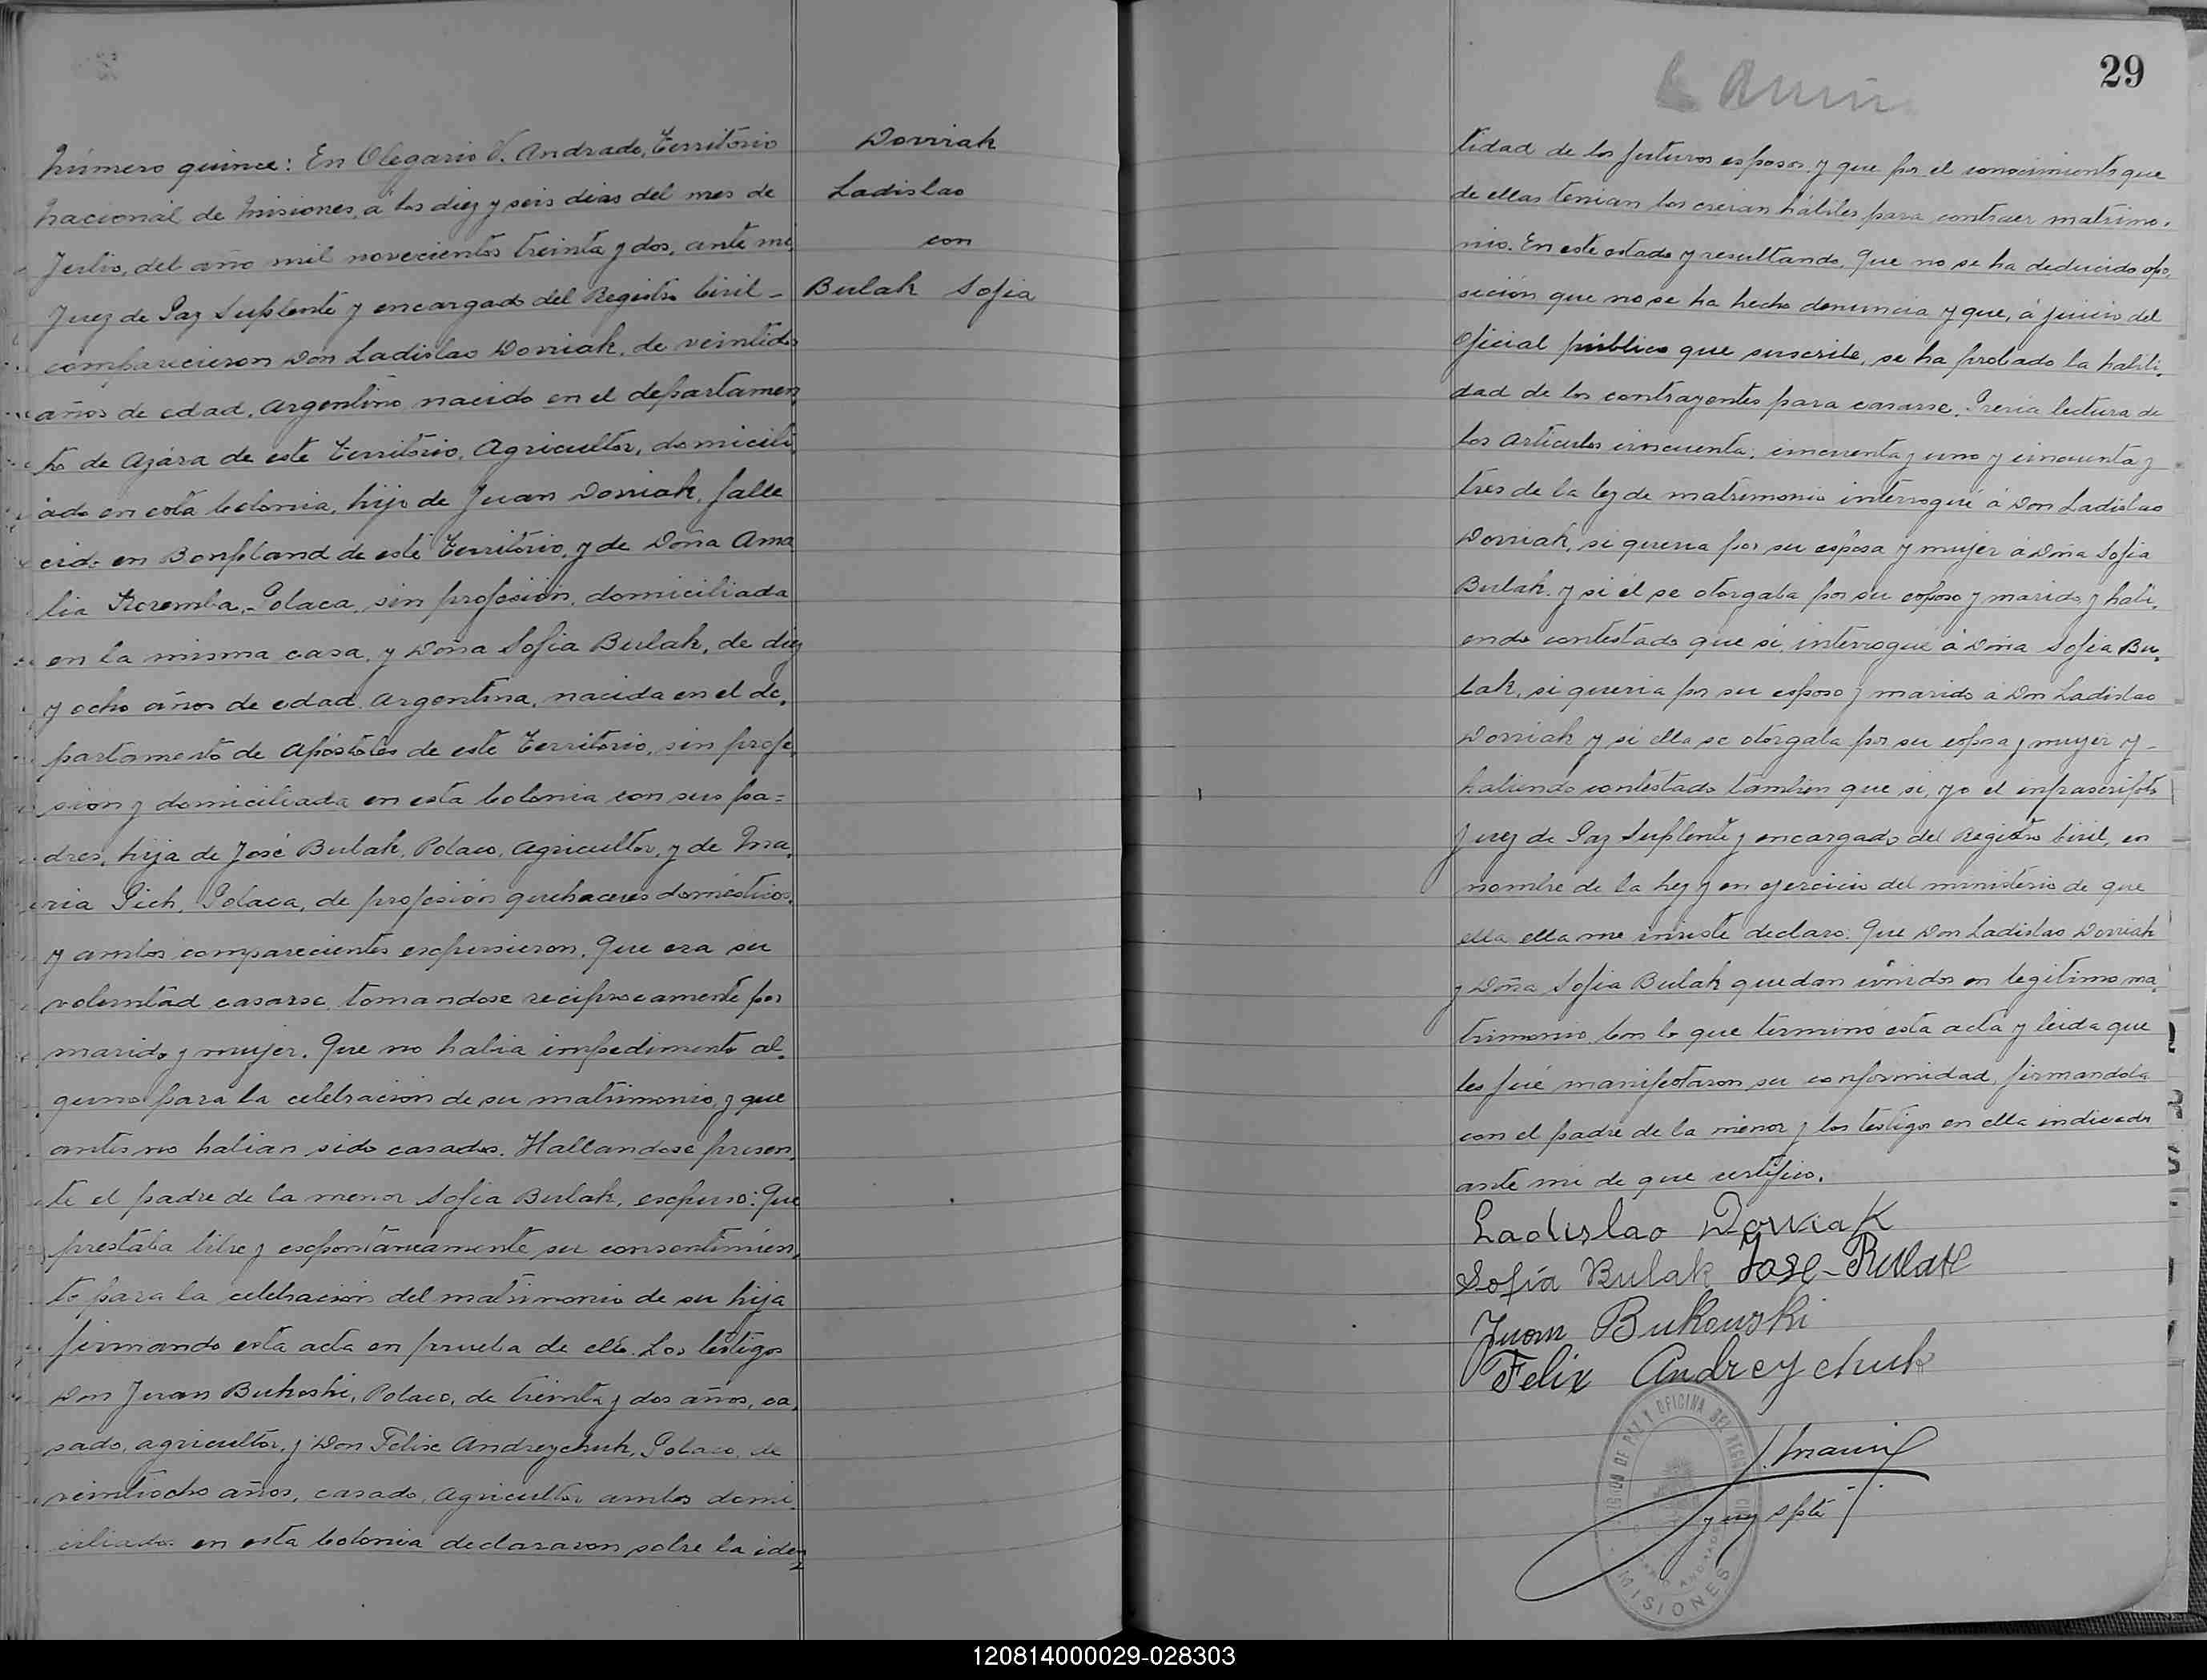 29
Número quince: En Olegario V. Andrade, Territorio
Nacional de Misiones, á los diez y seis dias del mes de
Julio, del año mil novecientos treinta y dos, ante mi
Juez de Paz Suplente y encargado del Registro Civil –
comparecieron Don Ladislao Dovriak, de veintidos
años de edad, Argentino nacido en el departamen
to de Azára de este Territorio, Agricultor, domicili
ado en esta Colonia, hijo de Juan Dovriak, falle
cido en Bonpland de este Territorio, y de Doña Ama
lia Koremba, Polaca, sin profesión, domiciliada
en la misma casa, y Doña Sofia Bulak, de diez
y ocho años de edad, Argentina, nacida en el de,
partamento de Apóstoles de este Territorio, sin profe,
sion y domiciliada en esta Colonia con sus pa=
dres, hija de José Bulak, Polaco, agricultor, y de Ma,
ria Pich, Polaca, de profesión quehaceres domésticos,
y ambos comparecientes expusieron, Que era su
voluntad casarse tomandose reciprocamente por
marido y mujer. Que no habia impedimento al,
guno para la celebración de su matrimonio, y que
antes no habian sido casados. Hallandose presen,
te el padre de la menor Sofia Bulak, expuso: Que
prestaba libre y espontáneamente su consentimien,
to para la celebración del matrimonio de su hija
firmando esta acta en prueba de ello. Los testigos
Don Juan Bukoski, Polaco, de treinta y dos años, ca,
sado, agricultor, y Don Felix Andreychuk, Polaco, de
veintiocho años, casado, Agricultor ambos domi
ciliados en esta Colonia declararon sobre la iden
Dovriak
Ladislao
con
Bulak Sofia
tidad de los futuros esposos, y que por el conocimiento que
de ellos tenian los creian hábiles para contraer matrimo,
nio. En este estado y resultando, Que no se ha deducido opo,
sición que no se ha hecho denuncia y que, á juicio del
Oficial público que suscribe, se ha probado la habili,
dad de los contrayentes para casarse. Previa lectura de
los Articulos cincuenta, cincuenta y uno y cincuenta y
tres de la ley de matrimonio interrogué á Don Ladislao
Dovriak, si queria por su esposa y mujer á Doña Sofia
Bulak, y si él se otorgaba por su esposo y marido, y habi,
endo contestado que si, interrogué á Doña Sofia Bu,
lak, si queria por su esposo y marido á Don Ladislao
Dovriak y si ella se otorgaba por su esposa y mujer y –
habiendo contestado tambien que si, yo el infrascripto
Juez de Paz Suplente y encargado del Registro Civil, en
nombre de la ley y en ejercicio del ministerio de que
ella ella me inviste declaro: Que Don Ladislao Dovriak
y Doña Sofia Bulak quedan únidos en legitimo ma,
trimonio. Con lo que terminó esta acta y leida que
les fué manifestaron su conformidad, firmandola
con el padre de la menor y los testigos en ella indicados
ante mi de que certifico.
Ladislao Dovriak
Sofía Bulak Jose Bulak
Juan Bukouski
Felix Andreychuk
OFICINA DEL
MISIONES
120814000029-028303